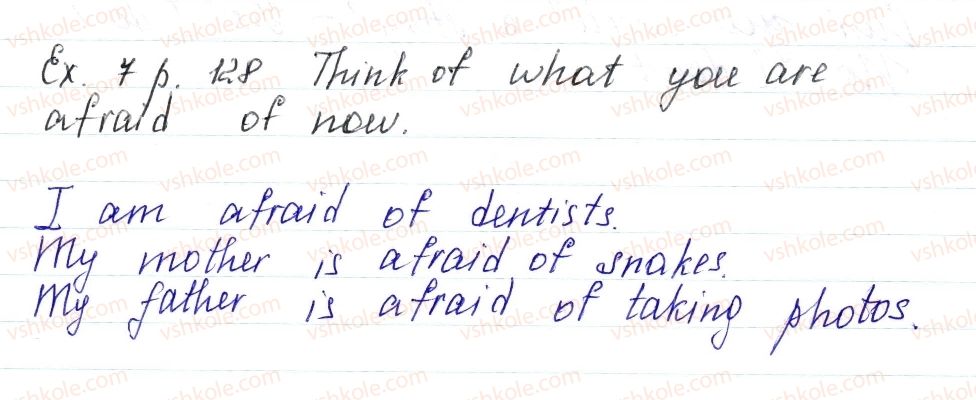 Ex. 7 p. 128 Think of what you are
afraid of now.
I am afraid of dentists.
My mother is afraid of snakes.
My father is afraid of taking photos.